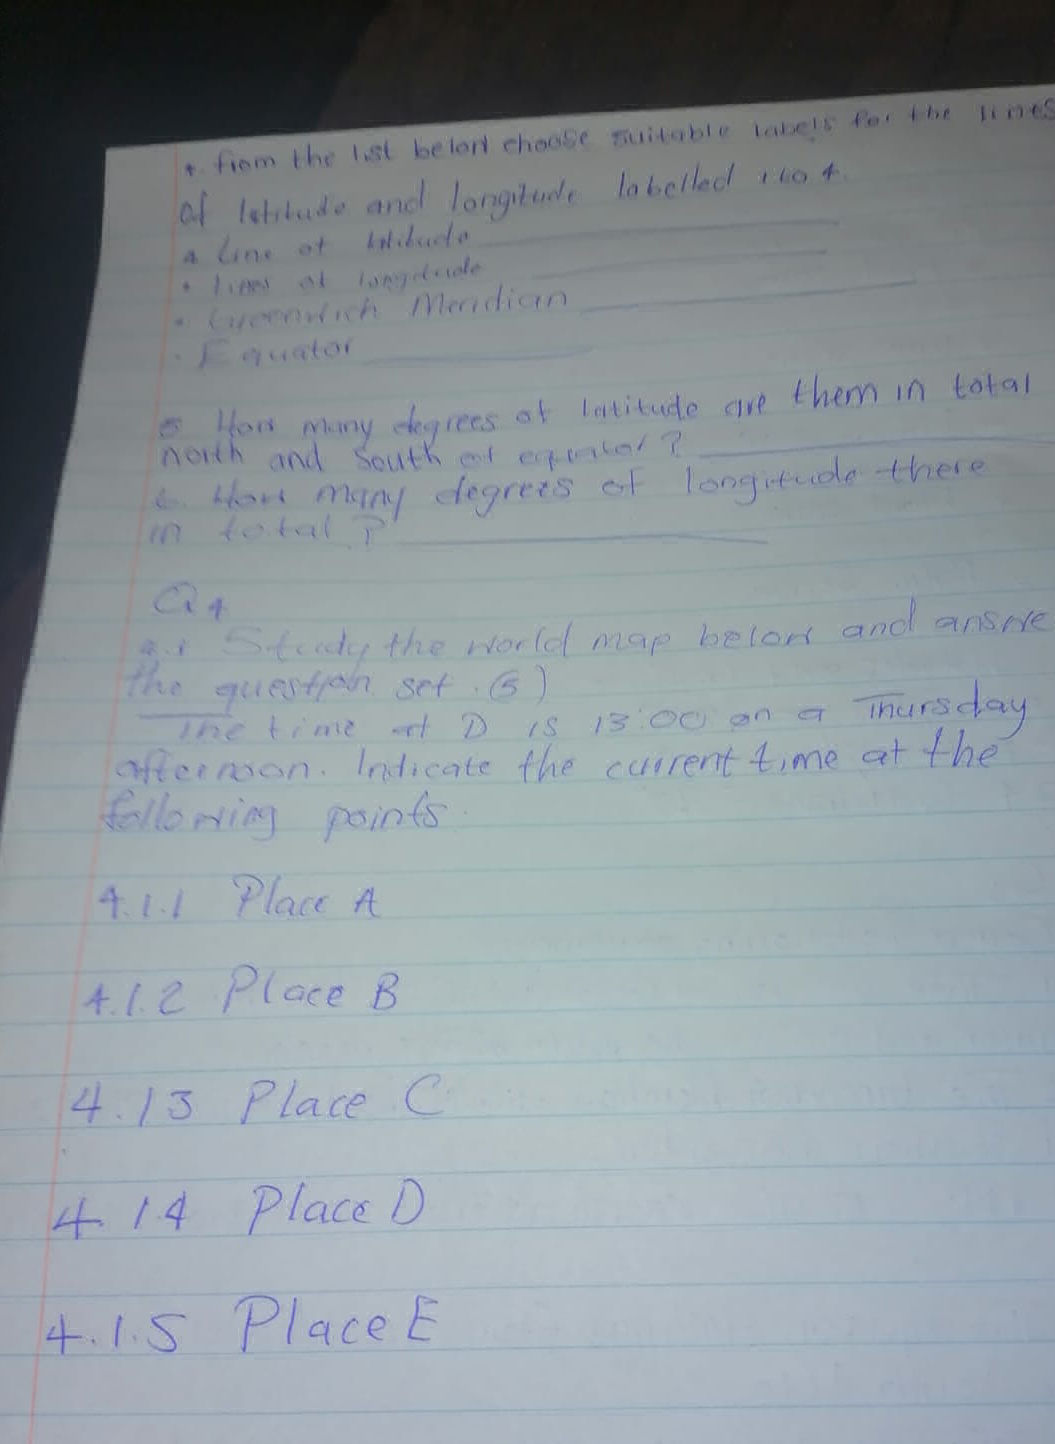 4. from the list below choose suitable labels for the lines
of latitude and longitude labelled 1 to 4.
Line of latitude
lines of longitude
Greenwich Meridian
Equator
5 How many degrees of latitude are them in total
north and south of equator?
6. How many degrees of longitude there
in total?
Q4
4.1 Study the world map below and answe
the question set. (5)
The time at D is 13:00 on a Thursday
afternoon. Indicate the current time at the
following points
4.1.1 Place A
4.1.2 Place B
4.13 Place C
4.14 Place D
4.1.5 Place E